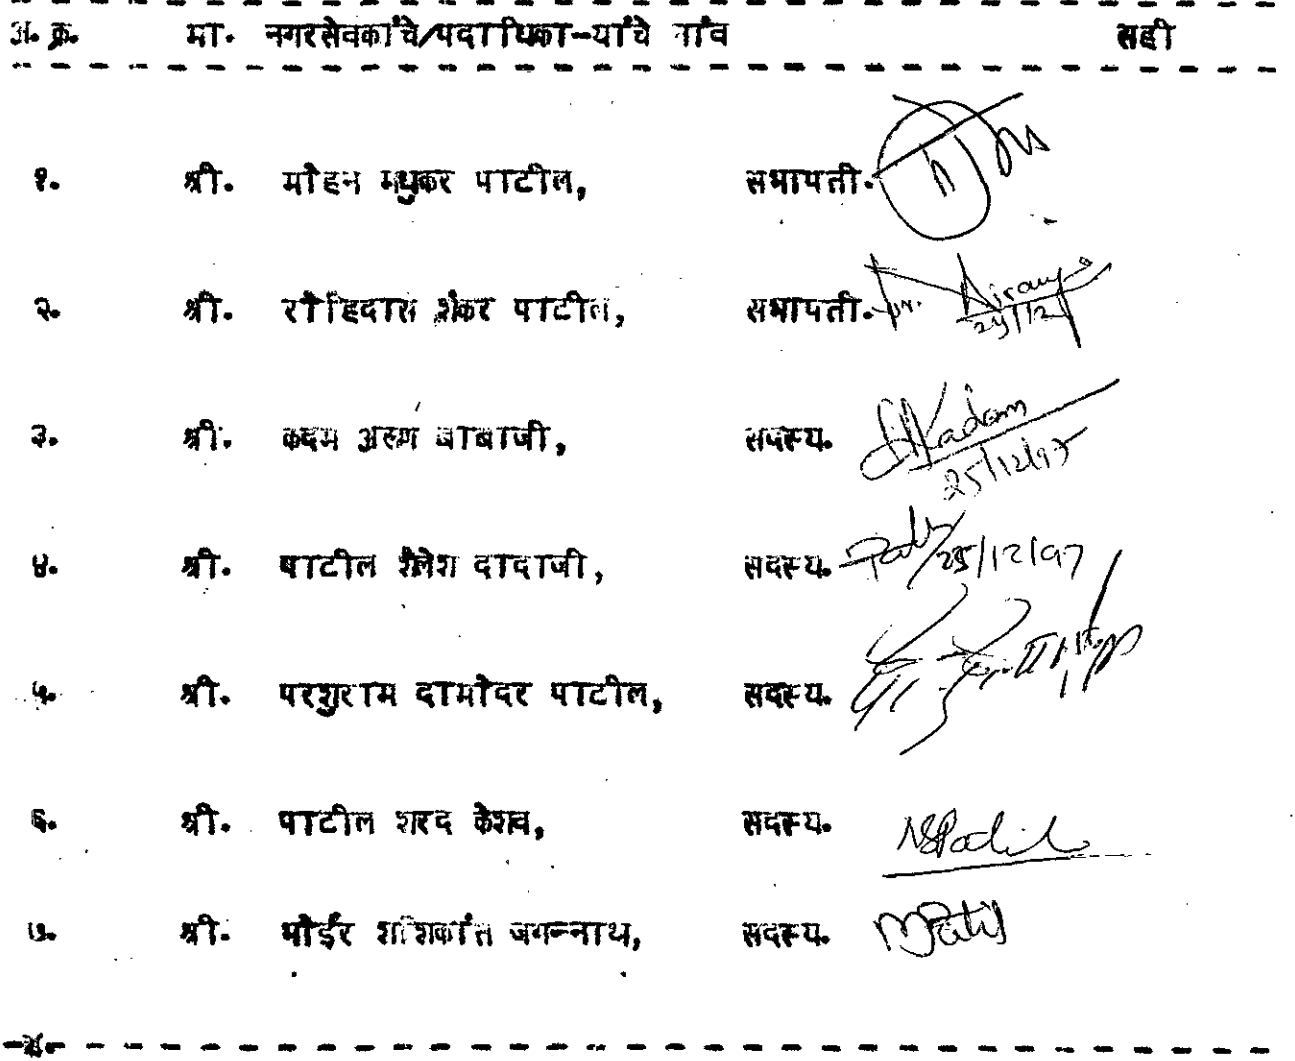 अ. क्र. मा. नगरसेवकांचे/पदाधिका-यांचे नांव सही
१. श्री. मोहन मधुकर पाटील, सभापती.
२. श्री. रोहिदास शंकर पाटील, सभापती.
३. श्री. कदम अरूण बाबाजी, सदस्य. Kadam
25/12/97
४. श्री. पाटील शैलेश दादाजी, सदस्य. 25/12/97
५. श्री. परशुराम दामोदर पाटील, सदस्य.
६. श्री. पाटील शरद केशव, सदस्य.
७. श्री. भोईर शशिकांत जगन्नाथ, सदस्य.